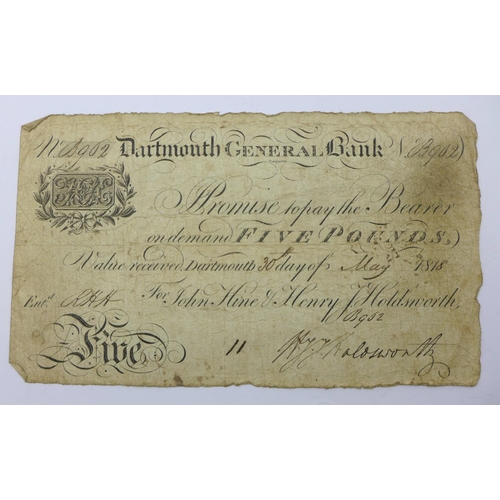 No. B902 Dartmouth GENERAL Bank No. B902
I Promise to pay the Bearer
on demand FIVE POUNDS
Value received, Dartmouth 30 day of May 1818
Entd. For John Hine & Henry J Holdsworth,
B902
Five 11 Hy J Holdsworth